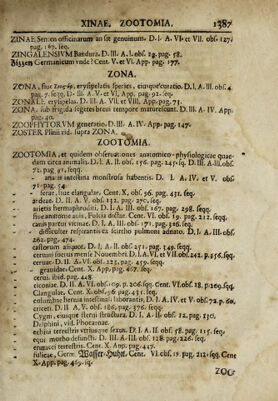 XINAE. ZOOTOMIA. 1387
ZINAE Semen officinarum an sit genuinum. D. I. A. VI. et VII. obs. 127.
pag. 167. seq.
ZINGALENSIUM Bardura. D. III. A. I. obs. 29. pag. 58.
Zissen Germanicum unde? Cent. V. et VI. App. pag. 177.
ZONA.
ZONA, sive Zoster, erysipelatis species, eiusque curatio. D. I. A. III. obs. 4.
pag. 7. seqq. D. III. A. V. et VI. App. pag. 92. seq.
ZONALE erysipelas. D. III. A. VII. et VIII. App. pag. 73.
ZONA sub frigida segetes breve tempore maturescunt. D. III. A. IV. App.
pag. 40.
ZOOPHYTORVM generatio D. III. A. IV. App. pag. 147.
ZOSTER Plinii vid. supra ZONA.
ZOOTOMIA.
ZOOTOMIA, et quidem observationes anatomico-physiologicae quaedam
circa animalia. D. I. A. II. obs. 176. pag. 245. sq. D. III. A. III. obs.
72. pag. 91. seqq.
- anatis intestina monstrosa habentis. D. I. A. IV. et V. obs
71. pag. 54.
- ferae, sive clangulae, Cent. X. obs. 56. pag. 431. seq.
ardeae. D. II. A. V. obs. 132. pag. 270. seq.
arietis hermaphroditi. D. I. A. III. obs. 167. pag. 298. seqq.
sive anatome avis, Fulcia dictae. Cent. VI. obs. 19. pag. 212. seqq.
canis partus vicinae. D. I. A. III. obs. 171. pag. 316. seq.
- difficulter respirantis ex scirrho pulmoni adnato. D. I. A. III. obs.
262. pag. 474.
castorum aliquot. D. I. A. II. obs. 251. pag. 349. seqq.
cervini foetus mense Novembri. D. I. A. VI. et VII. obs. 242. p. 356. seq.
cervae. D. II. A. VI. obs. 225. pag. 459. seqq.
- gravidae. Cent. X. App. pag. 467. seq.
cerui. ibid. pag. 448.
ciconiae. D. II. A. VI. obs. 109. p. 206. seq. Cent. VI. obs. 18. p. 209. sqq.
Clangulae. Cent. X. obs. 56. pag. 431. seq.
columbae hernia intestinali laborantis. D. I. A. IV. et V. obs. 72. p. 60.
criceti. D. II. A. V. obs. 186. pag. 376. seqq.
Cygni, eiusque sterni structura. D. I. A. II. obs. 12. pag. 130.
Delphini, vid. Phocaenae.
echini terrestris utriusque sexus. D. I. A. II. obs. 58. pag. 115. seq.
equi morbo defuncti. D. III. A. III. obs. 128. pag. 226. seq.
erinacei terrestris. Cent. X. App. pag. 447.
fulicae, Germ. Wasser-Huhn. Cent. VI. obs. 19. pag. 212. sqq. Cent
X. App. pag. 469. sq.
ZOO